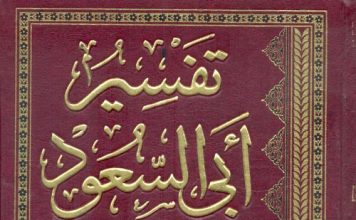 تَفْسِيرُ
أَبِي السُّعُودِ